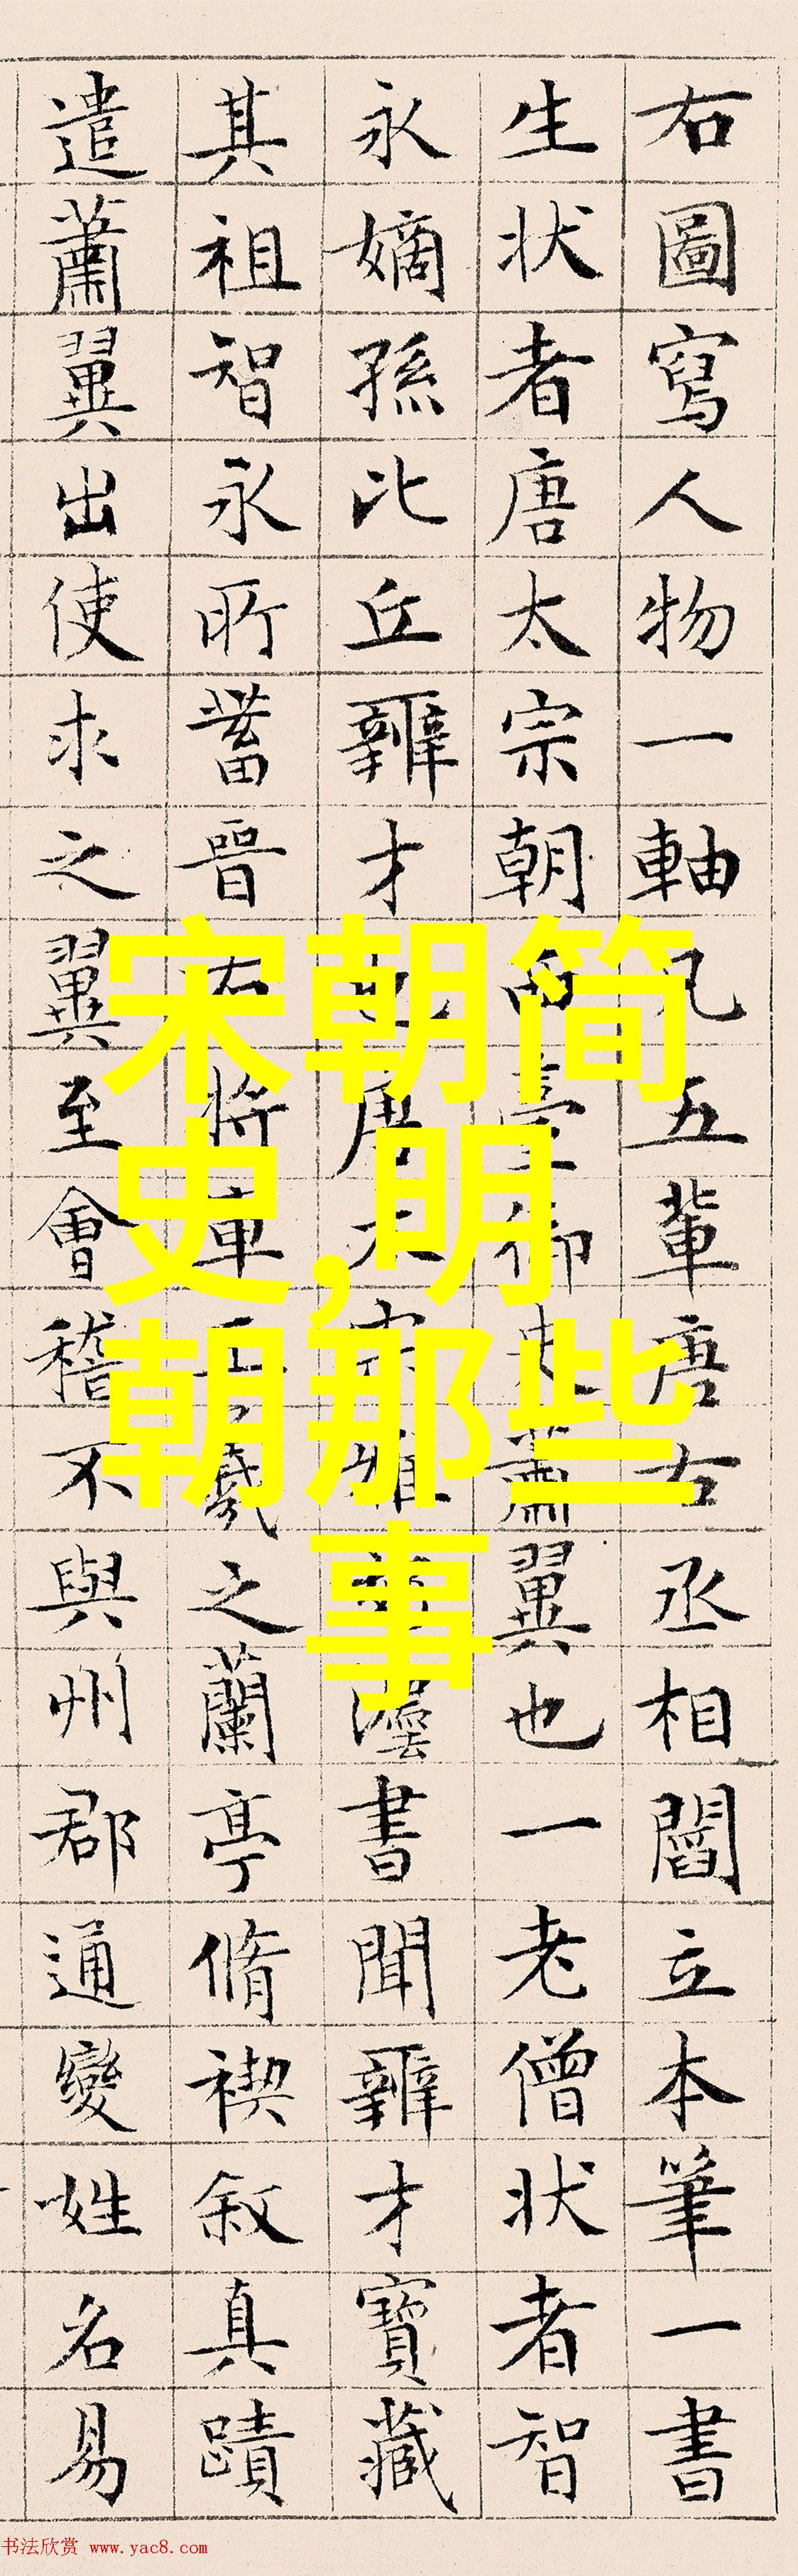 右圖寫人物一軸凡五輩唐右丞相閻立本筆一書
生状者唐太宗朝西臺御史蕭翼也一老僧状者智
永嫡孫比丘辯才也唐太宗雅灋書聞辯才寶藏
其祖智永所蓄晉右將軍王羲之蘭亭脩禊叙真蹟
遣蕭翼出使求之翼至會稽不與州郡通變姓名易
宋朝简
史,明
朝那些
事
书法欣赏 www.yac8.com